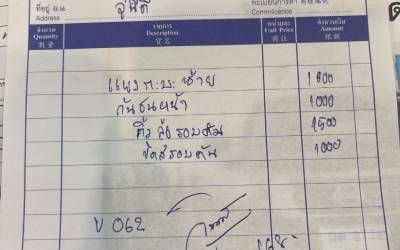 ที่อยู่ 住址
Address
อู่นิตี
ทะเบียนการค้า
Commlicence
จำนวน Quantity 數量
รายการ Description 貨名
หน่วยละ Unit Price 備註
จำนวนเงิน Amount 銀碼
แผง ก.บ.ะ ซ้าย 1800
กันชนหน้า 1000
คิ้ว ล้อ รอบคัน 1500
ขัดสีรอบคัน 1000
บ 062